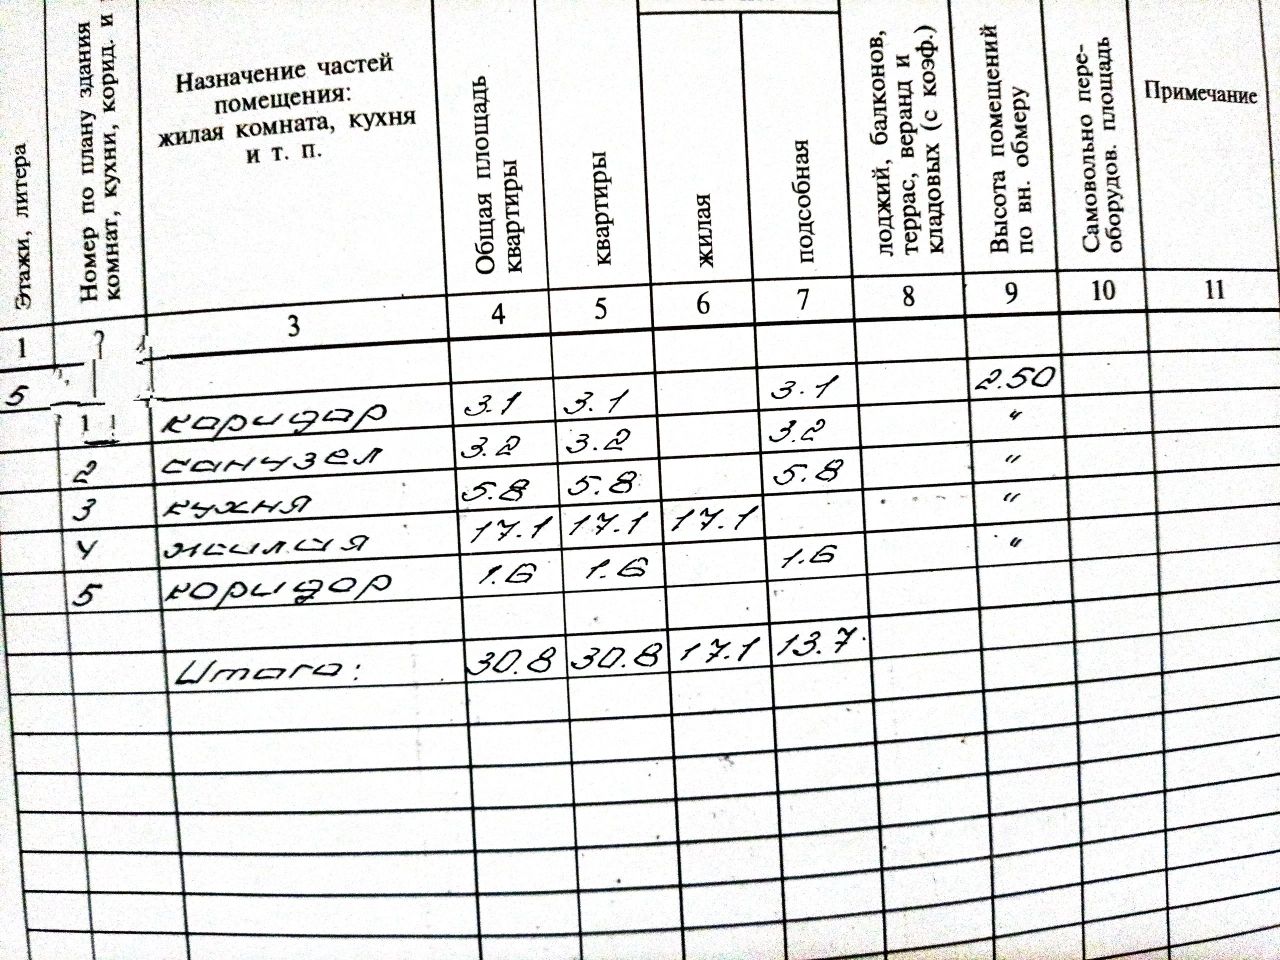 Этажи, литера
Номер по плану здания
комнат, кухни, корид. и
Назначение частей
помещения:
жилая комната, кухня
и т. п.
Общая площадь
квартиры
квартиры
жилая
подсобная
лоджий, балконов,
террас, веранд и
кладовых (с коэф.)
Высота помещений
по вн. обмеру
Самовольно пере-
оборудов. площадь
Примечание
1 2 3 4 5 6 7 8 9 10 11
5
1 коридор 3.1 3.1 3.1 2.50
2 санузел 3.2 3.2 3.2 "
3 кухня 5.8 5.8 5.8 "
4 жилая 17.1 17.1 17.1 "
5 коридор 1.6 1.6 1.6 "
Итого: 30.8 30.8 17.1 13.7